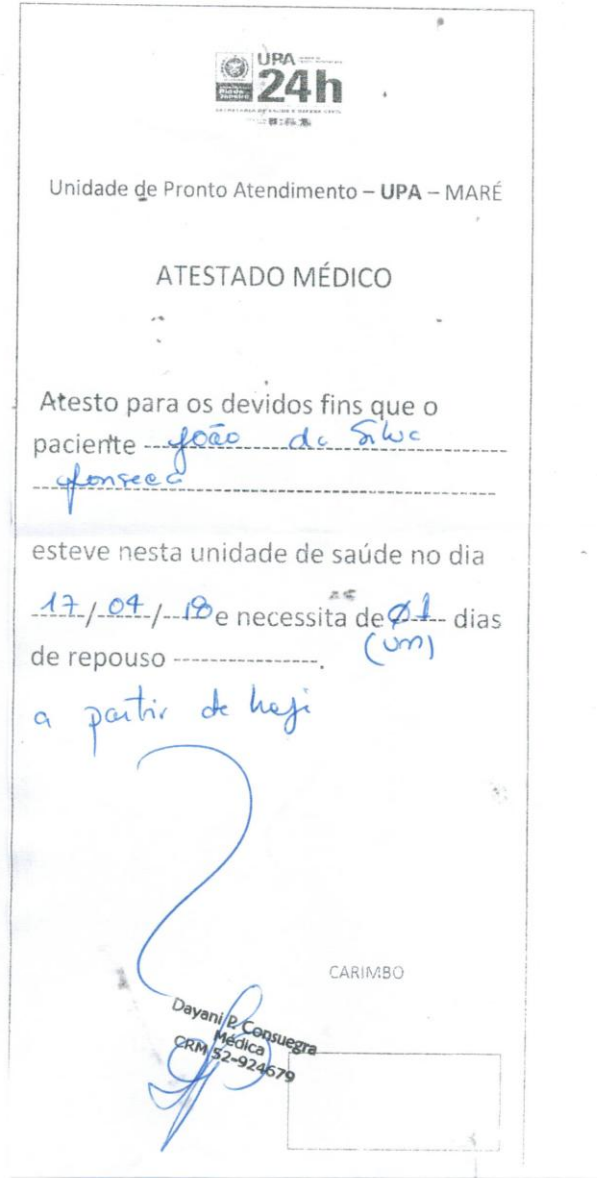 UPA
24h
Unidade de Pronto Atendimento – UPA – MARÉ
ATESTADO MÉDICO
Atesto para os devidos fins que o
paciente João da Silva
Fonseca
esteve nesta unidade de saúde no dia
17/04/18 e necessita de 01 dias
(um)
de repouso
a partir de hoje
CARIMBO
Dayani P. Consuegra
Médica
CRM 52-924679